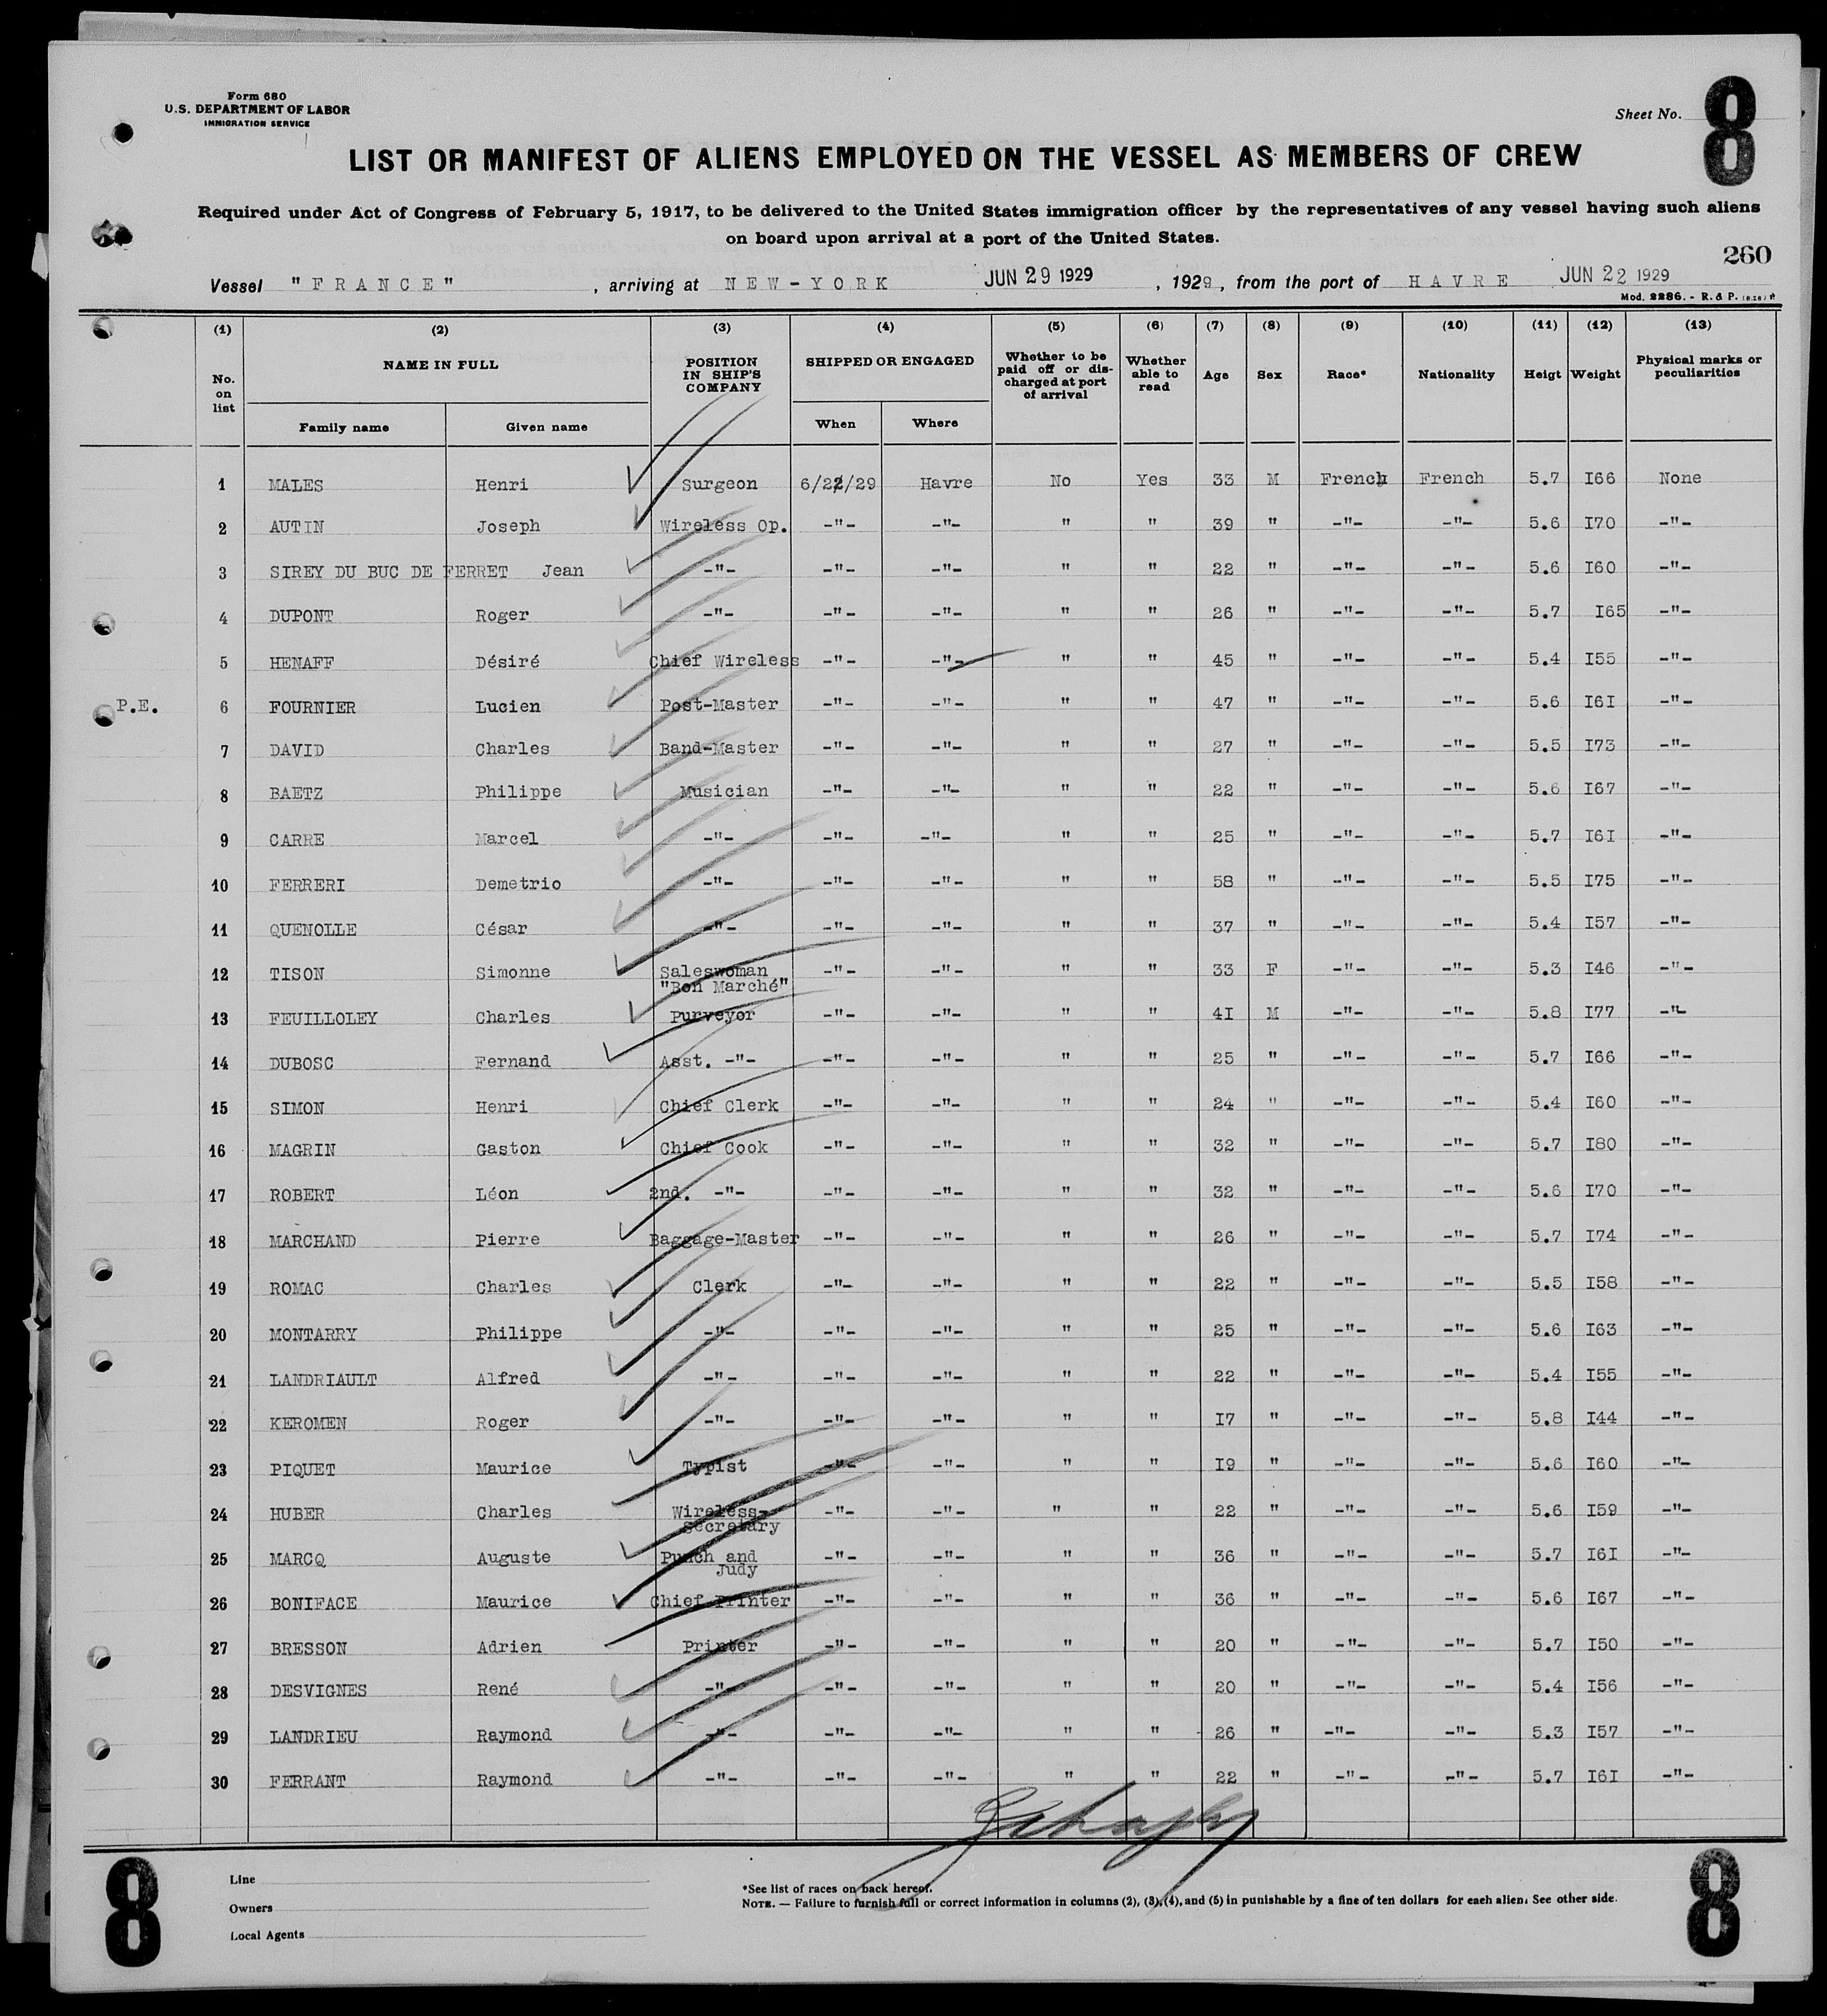 Form 680
U.S. DEPARTMENT OF LABOR
IMMIGRATION SERVICE
Sheet No. 8
LIST OR MANIFEST OF ALIENS EMPLOYED ON THE VESSEL AS MEMBERS OF CREW
Required under Act of Congress of February 5, 1917, to be delivered to the United States immigration officer by the representatives of any vessel having such aliens
on board upon arrival at a port of the United States.
260
Vessel "FRANCE", arriving at NEW-YORK JUN 29 1929, 1929, from the port of HAVRE JUN 22 1929
Mod. 2286. - R. & P.
(1) (2) (3) (4) (5) (6) (7) (8) (9) (10) (11) (12) (13)
No. on list NAME IN FULL POSITION IN SHIP'S COMPANY SHIPPED OR ENGAGED Whether to be paid off or discharged at port of arrival Whether able to read Age Sex Race* Nationality Heigt Weight Physical marks or peculiarities
Family name Given name When Where
1 MALES Henri Surgeon 6/22/29 Havre No Yes 33 M French French 5.7 I66 None
2 AUTIN Joseph Wireless Op. -"- -"- " " 39 " -"- -"- 5.6 I70 -"-
3 SIREY DU BUC DE FERRET Jean -"- -"- -"- " " 22 " -"- -"- 5.6 I60 -"-
4 DUPONT Roger -"- -"- -"- " " 26 " -"- -"- 5.7 I65 -"-
5 HENAFF Désiré Chief Wireless -"- -"- " " 45 " -"- -"- 5.4 I55 -"-
P.E. 6 FOURNIER Lucien Post-Master -"- -"- " " 47 " -"- -"- 5.6 I6I -"-
7 DAVID Charles Band-Master -"- -"- " " 27 " -"- -"- 5.5 I73 -"-
8 BAETZ Philippe Musician -"- -"- " " 22 " -"- -"- 5.6 I67 -"-
9 CARRE Marcel -"- -"- -"- " " 25 " -"- -"- 5.7 I6I -"-
10 FERRERI Demetrio -"- -"- -"- " " 58 " -"- -"- 5.5 I75 -"-
11 QUENOLLE César -"- -"- -"- " " 37 " -"- -"- 5.4 I57 -"-
12 TISON Simonne Saleswoman -"- -"- " " 33 F -"- -"- 5.3 I46 -"-
"Bon Marché"
13 FEUILLOLEY Charles Purveyor -"- -"- " " 4I M -"- -"- 5.8 I77 -"-
14 DUBOSC Fernand Asst. -"- -"- -"- " " 25 " -"- -"- 5.7 I66 -"-
15 SIMON Henri Chief Clerk -"- -"- " " 24 " -"- -"- 5.4 I60 -"-
16 MAGRIN Gaston Chief Cook -"- -"- " " 32 " -"- -"- 5.7 I80 -"-
17 ROBERT Léon 2nd. -"- -"- -"- " " 32 " -"- -"- 5.6 I70 -"-
18 MARCHAND Pierre Baggage-Master -"- -"- " " 26 " -"- -"- 5.7 I74 -"-
19 ROMAC Charles Clerk -"- -"- " " 22 " -"- -"- 5.5 I58 -"-
20 MONTARRY Philippe -"- -"- -"- " " 25 " -"- -"- 5.6 I63 -"-
21 LANDRIAULT Alfred -"- -"- -"- " " 22 " -"- -"- 5.4 I55 -"-
22 KEROMEN Roger -"- -"- -"- " " I7 " -"- -"- 5.8 I44 -"-
23 PIQUET Maurice Typist -"- -"- " " I9 " -"- -"- 5.6 I60 -"-
24 HUBER Charles Wireless- -"- -"- " " 22 " -"- -"- 5.6 I59 -"-
secretary
25 MARCQ Auguste Punch and -"- -"- " " 36 " -"- -"- 5.7 I6I -"-
Judy
26 BONIFACE Maurice Chief Printer -"- -"- " " 36 " -"- -"- 5.6 I67 -"-
27 BRESSON Adrien Printer -"- -"- " " 20 " -"- -"- 5.7 I50 -"-
28 DESVIGNES René -"- -"- -"- " " 20 " -"- -"- 5.4 I56 -"-
29 LANDRIEU Raymond -"- -"- -"- " " 26 " -"- -"- 5.3 I57 -"-
30 FERRANT Raymond -"- -"- -"- " " 22 " -"- -"- 5.7 I6I -"-
8
8
Line
Owners
Local Agents
*See list of races on back hereof.
NOTE. — Failure to furnish full or correct information in columns (2), (3), (4), and (5) in punishable by a fine of ten dollars for each alien. See other side.